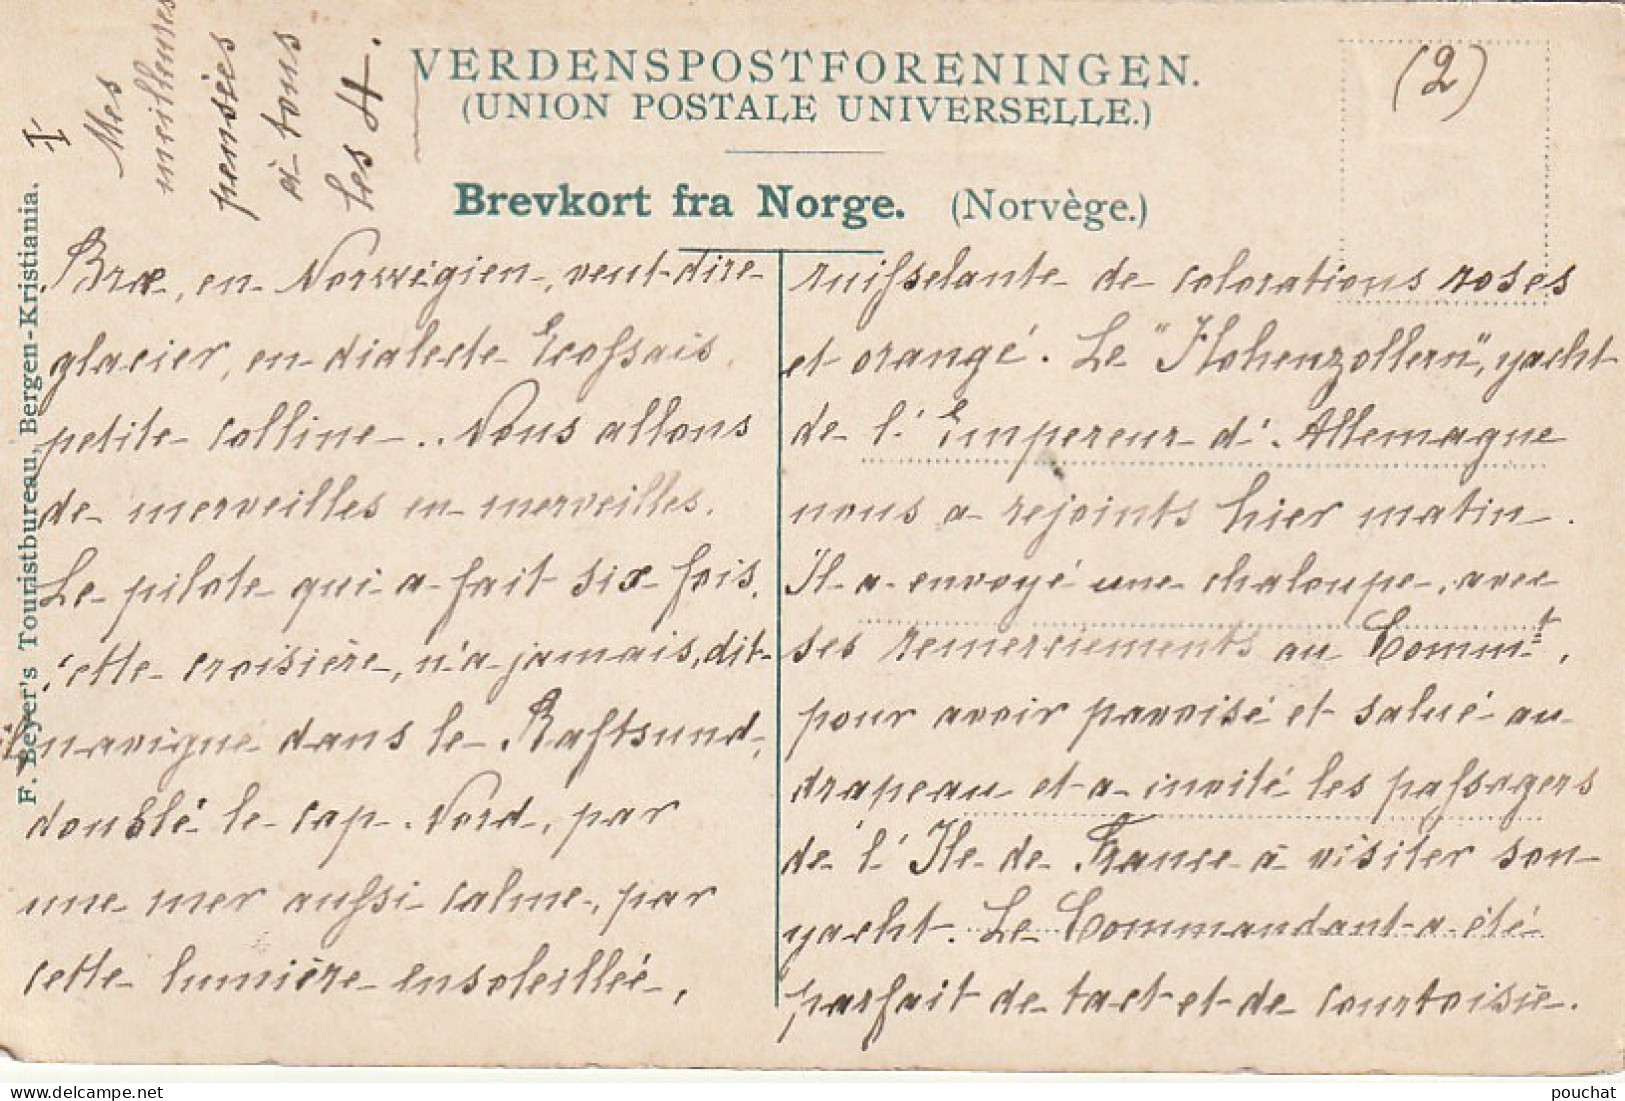 VERDENSPOSTFORENINGEN.
(UNION POSTALE UNIVERSELLE.)
Brevkort fra Norge. (Norvège.)
(2)
F. Beyer's Touristbureau, Bergen-Kristiania.
I
Mes
meilleures
pensées
à tous
les 4.
Bræ, en Norwégien, veut dire
glacier, en dialecte Ecossais
petite colline.. Nous allons
de merveilles en merveilles.
Le pilote qui a fait six fois,
cette croisière, n'a jamais, dit-
il, navigué dans le Raftsund,
doublé le cap Nord, par
une mer aussi calme, par
cette lumière ensoleillée,
ruisselante de colorations roses
et orangé. Le "Hohenzollern", yacht
de l'Empereur d'Allemagne
nous a rejoints hier matin.
Il a envoyé une chaloupe, avec
ses remerciements au Commt,
pour avoir pavoisé et salué au
drapeau et a invité les passagers
de l'Ile de France à visiter son
yacht. Le Commandant a été
parfait de tact et de courtoisie.
pouchat
https://www.delcampe.net